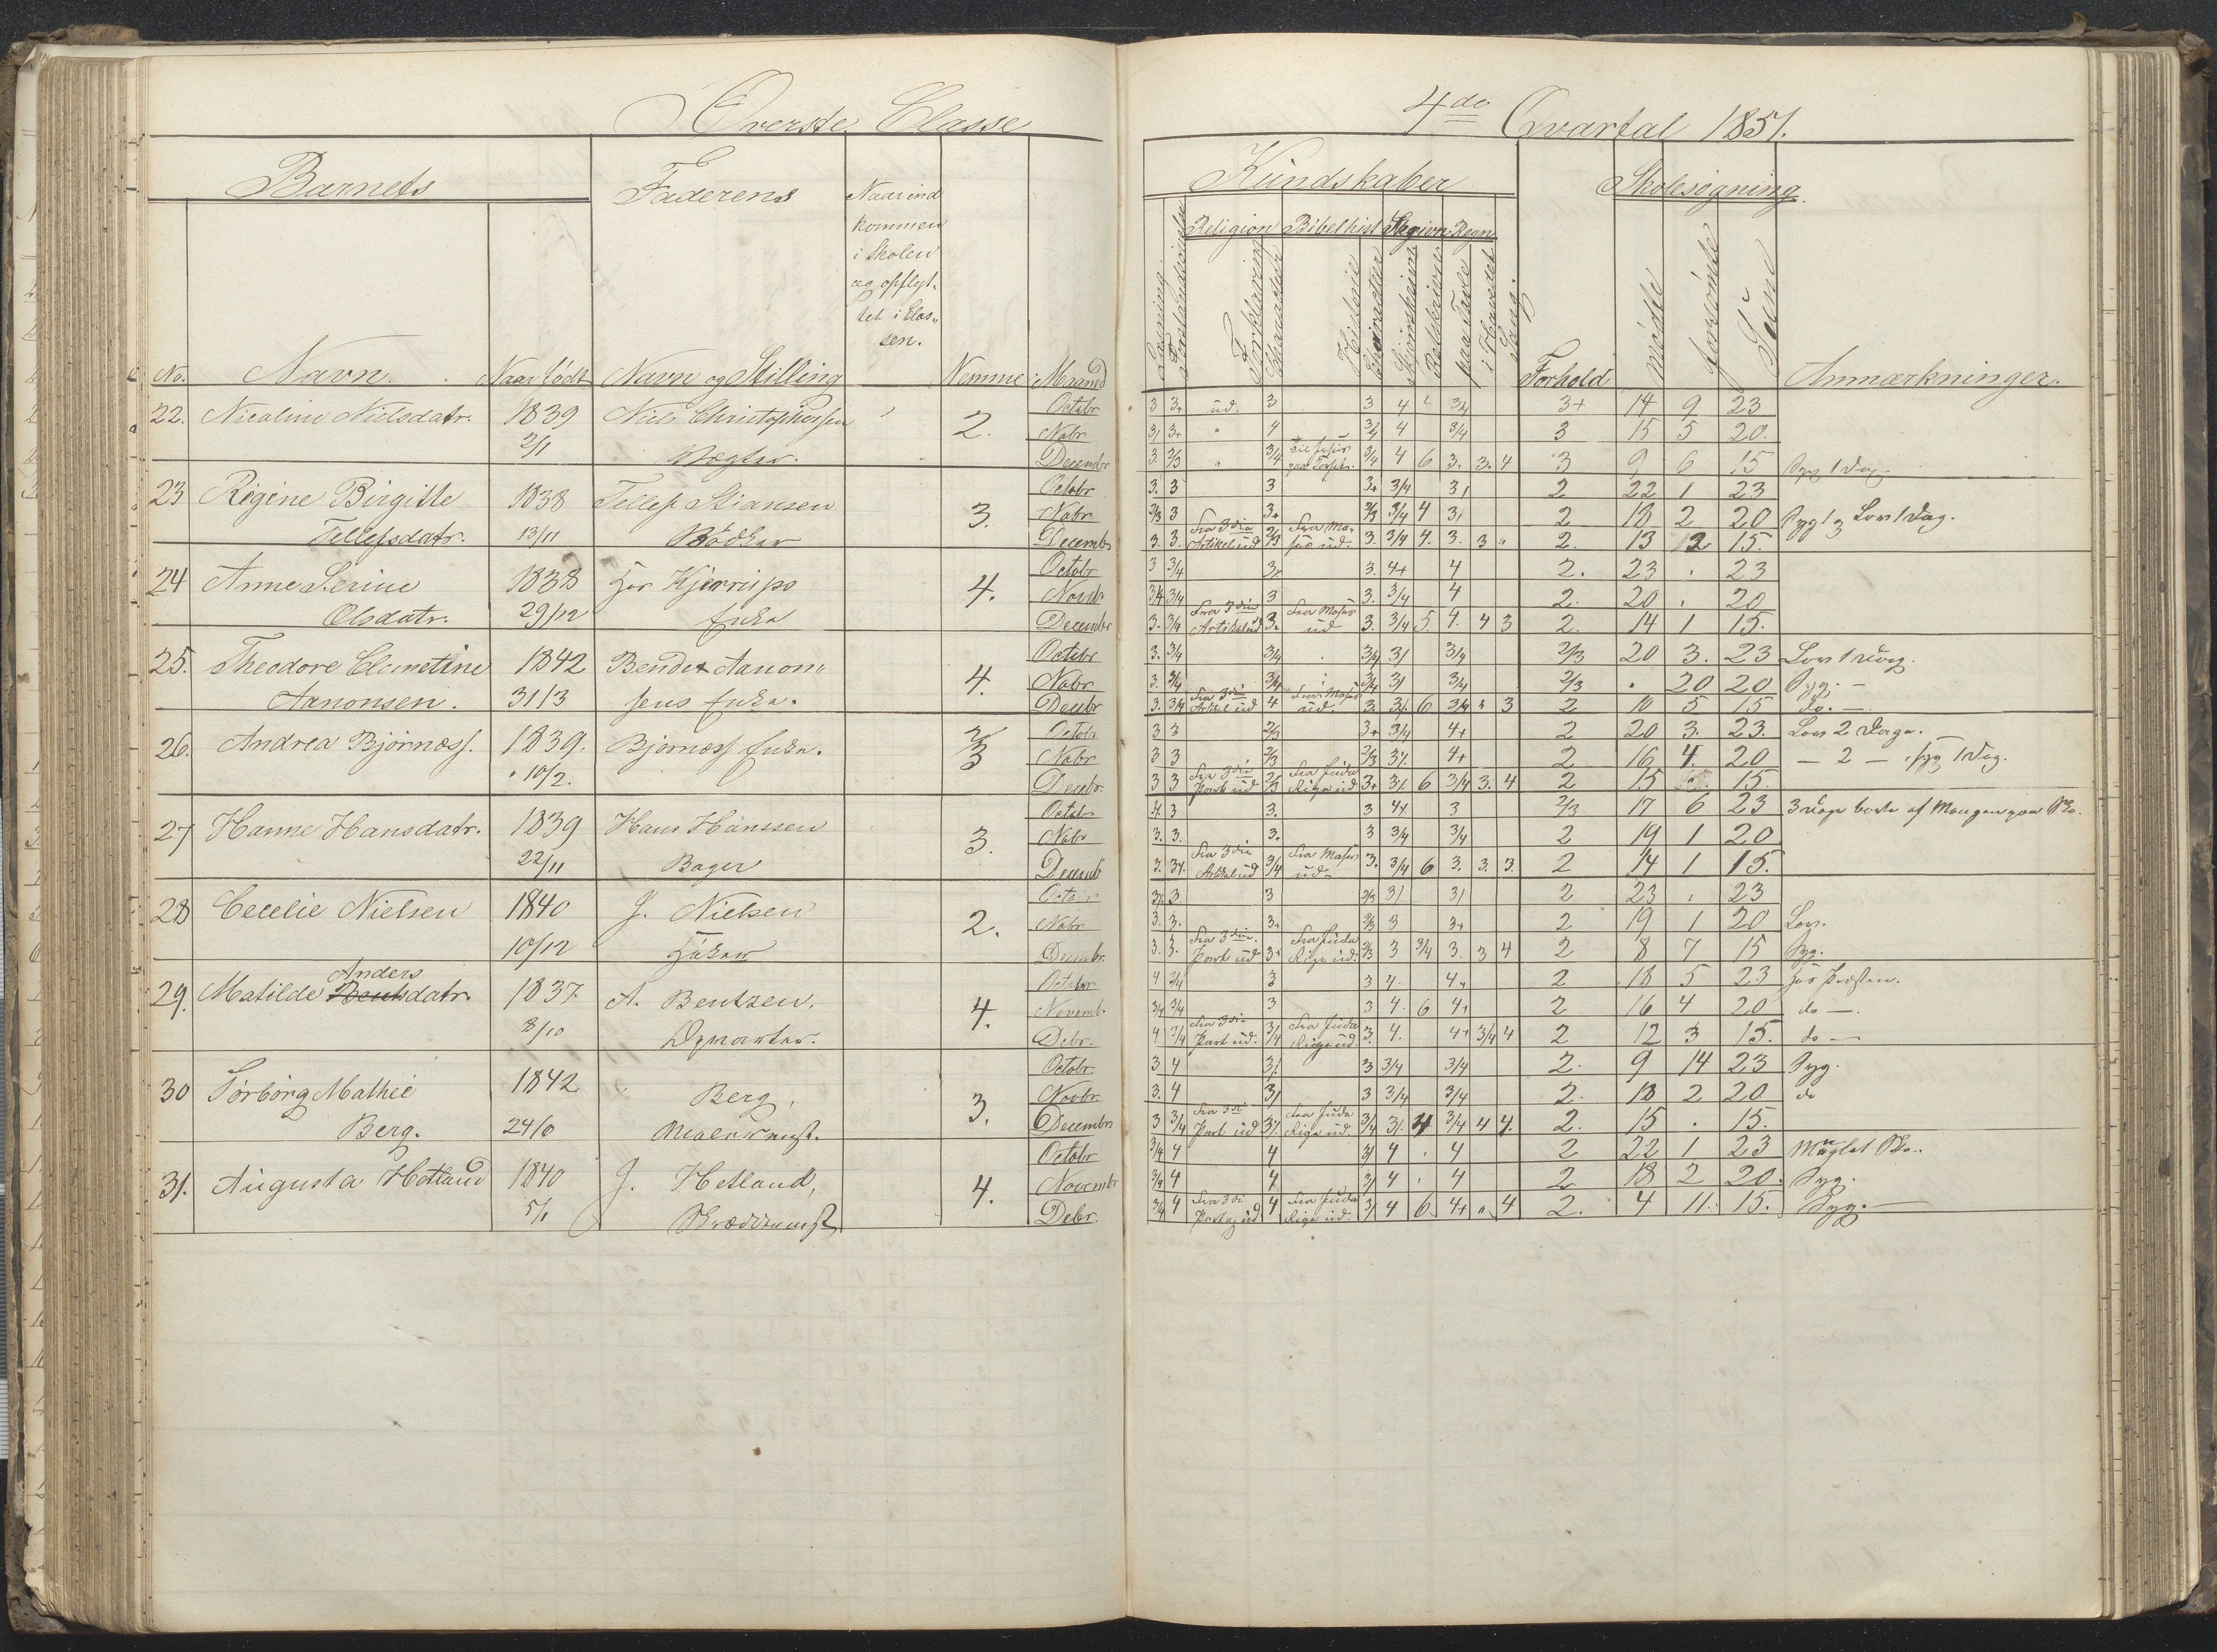 Øverste Classe
Barnets
Faderens
Naar ind
kommen
i Skolen
og opflyt-
tet i Clas„
sen.
No. Navn. Naar født Navn og Stilling Nemme Maaned
22. Nicoline Nielsdatr. 1839 Niels Christophersen 2. Octobr
2/1 Vægter. Nobr
Decembr
23 Regine Birgitte 1838 Tellef Stiansen 3. Octobr
Tellefsdatr. 13/11 Bødker Nobr
Decembr
24 Anne Serine 1838 Hos Kjerrips 4. Octobr
Olsdatr. 29/12 Enke Novbr
Decembr
25. Theodore Clemetine 1842 Bendix Aanon„ 4. Octobr
Aanonsen. 31/3 sens Enke. Nobr
Decbr
26. Andrea Bjørnæss. 1839. Bjørnæss Enke. 2/3 Octobr
10/2. Nobr
Decbr.
27 Hanne Hansdatr. 1839 Hans Hanssen 3. Octobr
22/11 Bager Nobr
Decemb
28 Cecelie Nielsen 1840 J. Nielsen 2. Octobr
10/12 Nobr
Decembr.
29. Matilde Bentsdatr. Anders 1837. A. Bentzen. 4. Octobr
8/10 Novemb.
Debr.
30 Torborg Mathee 1842 Berg, 3. Octobr
Berg. Novbr
Decembr
31. Augusta Hetland 1840 J. Hetland, 4. Octobr
5/1 Novembr
Debr.
4de Qvartal 1851.
Kundskaber
Skolesøgning.
Religion Bibelhist Regn.
Læsning. Forklaring Charakteer Historie Charakteer Skjønskrivn. Retskrivn. paa Tavle i Hovedet Sang. Forhold mødte forsømte Sum Anmærkninger.
3 3+ ud. 3 3 4 3/4 3+ 14 9 23
3/ 3+ " 4 3/4 4 3/4 3 15 5 20.
3. 2/3 " 3/4 3/4 4 6 3. 3. 4 3 9 6 15 Syg 1 Dag.
3. 3 3 3+ 3/4 3/ 2 22 1 23
2/3 3 3+ 2/3 3/4 4 3/ 2 18 2 20 Syg 1 Lov 1 Dag.
3. 3. Fra 3die Artikel ud 2/3 Fra Moses ud. 3. 3/4 4. 3. 3 " 2. 13 2 15.
3 3/4 3. 4+ 4 2. 23 . 23
3/4 3/4 3 3. 3/4 4 2. 20 . 20
3. 3/4 Fra 3die Artikel ud 3. Fra Moses ud 3. 3/4 5. 4. 4 3 2. 14 1 15.
3. 3/4 3/4 3/4 3/ 3/4 2/3 20 3. 23 Lov 1 Dag.
3. 3/4 3/4 3/4 3/ 3/4 2/3 . 20 20 Syg. –
3. 3/4 Fra 3die Artikel ud 4 Fra Moses ud. 6 3/4 3 2 10 5 15 do. –
3 3 2/3 3+ 3/4 4+ 2 20 3. 23. Lov 2 Dage.
3 3 2/3 2/3 4+ 2 16 4. 20 – 2 – , syg 1 Dag.
3 3 Fra 3die Part ud 2/3 Fra Juda Rige ud 3+ 6 3/4 3. 4 2 15 . 15.
3 3. 3 3 2/3 17 6 23 3 Dage borte af Mangel paa Sko.
3. 3. 3. 3 3/4 3/4 2 19 1 20
3. Fra 3die Artikel ud 3/4 Fra Moses ud – 3. 3/4 6 3. 3. 3. 2 14 1 15.
3. 3 2/3 3/ 3/ 2 23 . 23
3. 3. 3+ 2/3 3 3+ 2 19 1 20 Lov.
3. 3. Fra 3die Part ud 3+ Fra Juda Rige ud. 2/3 3 3/4 3. 3 4 2 8 7 15 Syg.
4 3/4 3 3 4. 4+ 2 18 5 23 hos Præsten.
3/4 3/4 3 3 4. 6 4+ 2 16 4 20 do –.
4 3/4 Fra 3die Part ud. 3/4 Fra Juda Rige ud. 3. 4. 4+ 3/4 4 2 12 3 15. do –
3 4 3/. 3 3/4 3/4 2. 9 14 23 Syg.
3. 4 3/ 3 3/4 3/4 2. 18 2 20 do
3 3/4 Part ud Fra Juda Rige ud. 3/4 3/. 4 3/4 4 4. 2. 15 . 15.
3/4 4 4 3/ 4 . 4 2 22 1 23 Manglet Sko.
3/4 4 4 3/ 4 . 4 2 18 2 20. Syg.
3/4 4 4 Fra Juda Rige ud. 3/ 4 6 4+ " 4 2. 4 11. 15. Syg. –